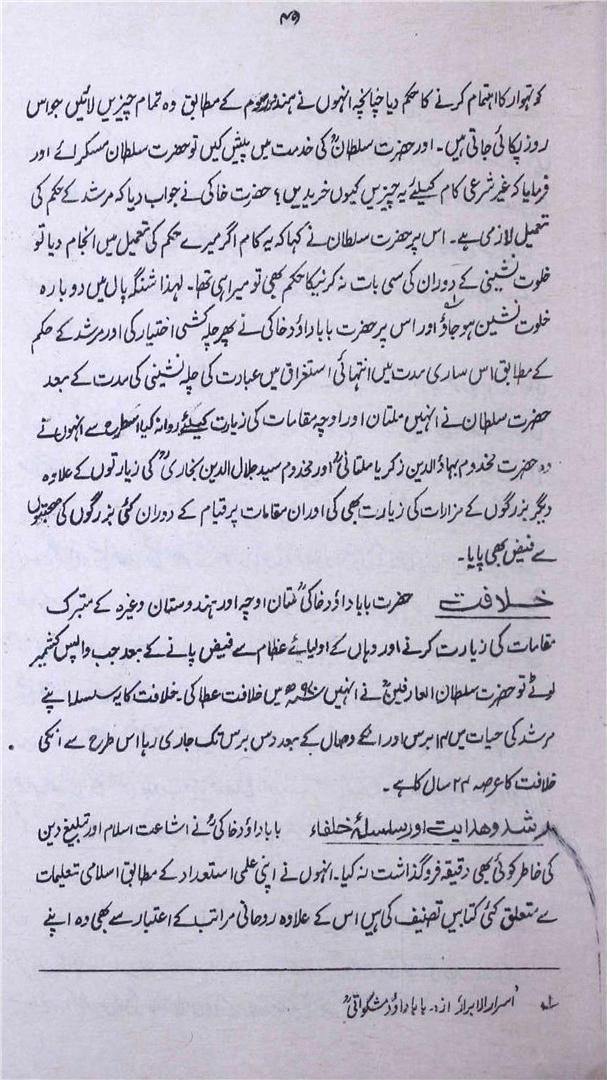 ۴۹
کو تہوار کا اہتمام کرنے کا حکم دیا چنانچہ انہوں نے ہندو رسوم کے مطابق وہ تمام چیزیں لائیں جو اس
روز پکائی جاتی ہیں۔ اور حضرت سلطانؒ کی خدمت میں پیش کیں تو حضرت سلطان مسکرائے اور
فرمایا کہ غیر شرعی کام کیلئے یہ چیزیں کیوں خریدیں؟ حضرت خاکی نے جواب دیا کہ مرشد کے حکم کی
تعمیل لازمی ہے۔ اس پر حضرت سلطان نے کہا کہ یہ کام اگر میرے حکم کی تعمیل میں انجام دیا تو
خلوت نشینی کے دوران کی سی بات نہ کرنیکا حکم بھی تو میرا ہی تھا۔ لہذا شنگہ پال میں دوبارہ
خلوت نشین ہو جاؤ۱؎ اور اس پر حضرت بابا داؤد خاکی نے پھر چلہ کشی اختیار کی اور مرشد کے حکم
کے مطابق اس ساری مدت میں انتہائی استغراق میں عبادت کی چلہ نشینی کی مدت کے بعد
حضرت سلطان نے انہیں ملتان اور اوچہ مقامات کی زیارت کیلئے روانہ کیا اسطرح سے انہوں نے
حضرت مخدوم بہاؤالدین زکریا ملتانیؒ اور مخدوم سید جلال الدین بخاریؒ کی زیارتوں کے علاوہ
دیگر بزرگوں کے مزارات کی زیارت بھی کی اور ان مقامات پر قیام کے دوران کئی بزرگوں کی صحبتوں
سے فیض بھی پایا۔
خلافت حضرت بابا داؤد خاکیؒ ملتان اوچہ اور ہندوستان وغیرہ کے متبرک
مقامات کی زیارت کرنے اور وہاں کے اولیائے عظام سے فیض پانے کے بعد جب واپس کشمیر
لوٹے تو حضرت سلطان العارفینؒ نے انہیں ۹۷۰ھ میں خلافت عطا کی۔ خلافت کا یہ سلسلہ اپنے
مرشد کی حیات میں ۱۴ برس اور انکے وصال کے بعد دس برس تک جاری رہا اس طرح سے انکی
خلافت کا عرصہ ۲۴ سال کا ہے۔
رشد و ہدایت اور سلسلۂ خلفاء بابا داؤد خاکیؒ نے اشاعت اسلام اور تبلیغ دین
کی خاطر کوئی بھی دقیقہ فروگذاشت نہ کیا۔ انہوں نے اپنی علمی استعداد کے مطابق اسلامی تعلیمات
سے متعلق کئی کتابیں تصنیف کی ہیں اس کے علاوہ روحانی مراتب کے اعتبار سے بھی وہ اپنے
۱؎ اسرار الابرار از:۔ بابا داؤد مشکواتیؒ